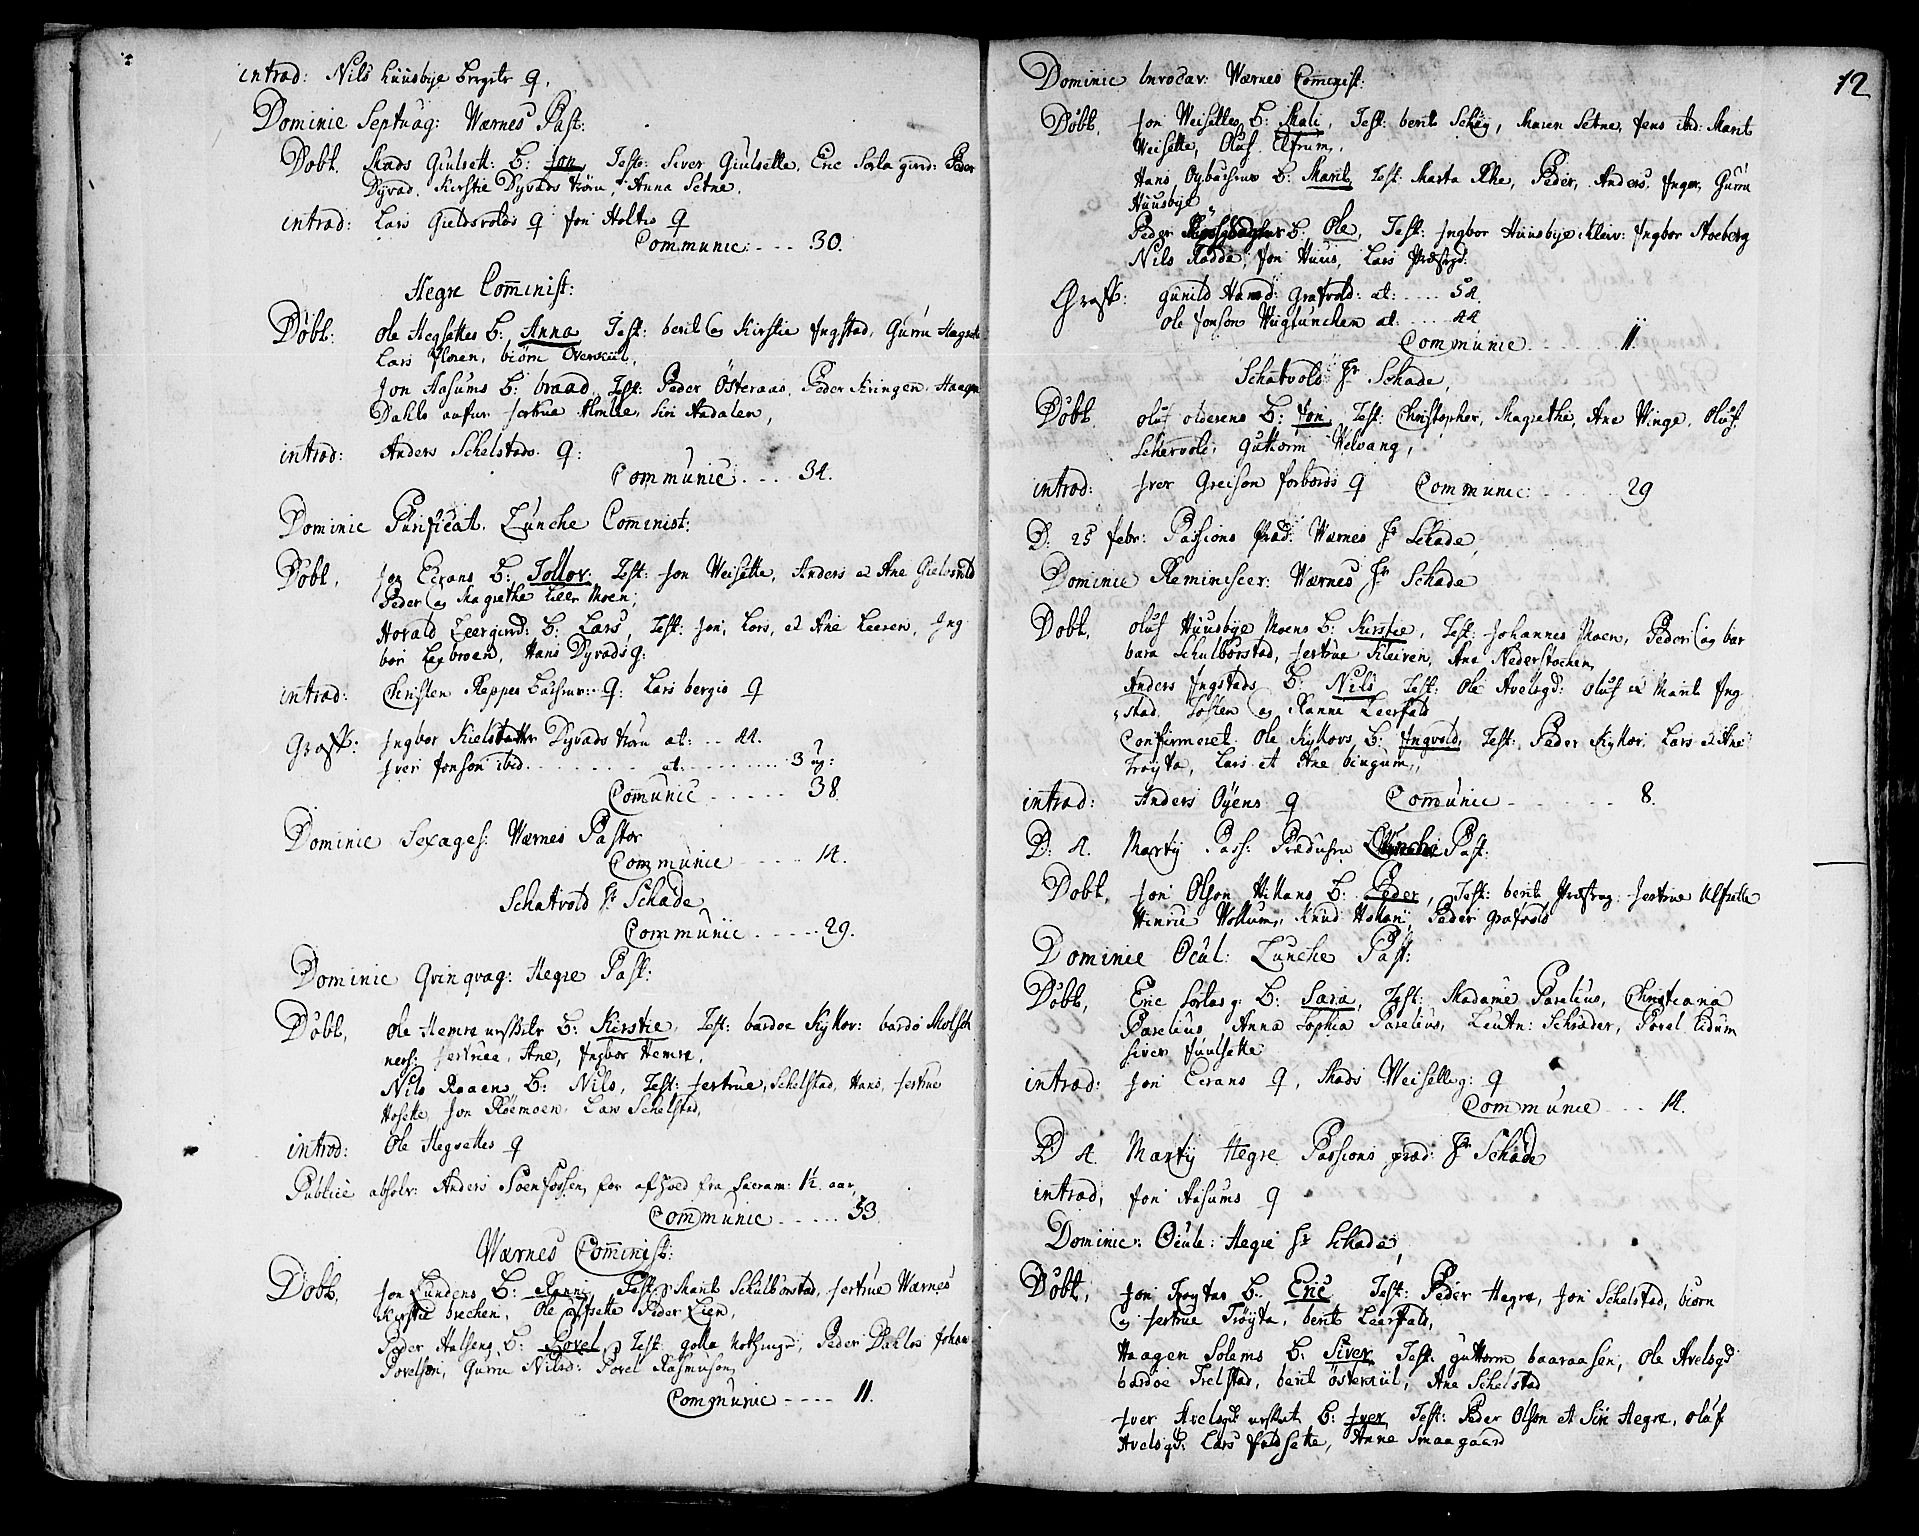 introd: Nils Huusbye bergits q,
Dominic Septuag: Wærnes Past:
Döbt. Mads Giulsett: B: Jon, Test: Siver Giulsette, Eric Sorla gierd: Peder
Dyvad, Kirstie Dyvads trön, Anna Setne,
introd: Lars Gieldsvolds q Jon Holtes q
Communic: - - - 30.
Hegre Comminist:
Döbt. Ole Hegsettes B: Anna Test: berit og Kirstie Ingstad, Gurru Hegsette
Lars floren, biörn Överkiil,
Jon Aasums B: braad, Test: Peder Österaas, Peder Kringen, Haagen
Dahls aufur Jertrue Almlie, Siri Aadalen,
introd: Anders Schelstads q:
Communic: . . . . 34.
Dominic Purificat. Lunche Comminist:
Döbt, Jon Eirans B: Tollov: Test: Jon Weisette, Anders et Ane Gielsvold
Peder og Magrethe Leer Moen;
Horald Leergierd: B: Lars, Test: Jon, Lars, et Ane Leeren, Ing
bor Leebroen, Hans Dyvads g:
introd: Christen Kappes q: Lars bergis q
Graff: Ingbor Kielstatter Dyvads trön at: . . 44.
Iver Jonson ibid. . . . . . . . at: . . . . . . . . 3 ug:
Comunic - - - - - 38.
Dominic Sexages: Wærnes Pastor
Communic - - - - 14.
Schatvold Hr Schade
Communic - - - - - 29.
Dominic Qvinqvag: Hegre Past:
Döbt, Ole Hemre B: Kirstie, Test: bardoe Kyllov: bardo
ners: Jertrue, Ane, Ingbor Hemre,
Nils Raaens B: Nils, Test: Jertrue, Schelstad, Hans, Jertrue
Hosette, Jon Röemoen, Lars Schelstad,
introd: Ole Hegsettes q
Publice absolv: Anders Soenfossen, for afhold fra Sacram: 1½ aar,
Communic - - - - - 53.
Wærnes Comminist:
Döbt, Jon Lundens B: Ranni, Test: Marit Schulbörstad, Jertrue Wærnes
Kirstie brechen, Ole Peder Lien,
Peder Halseng B: Povel, Test: golla Peder Dahls Johan
Povelson, Gurru Nilsd: Povel Rasmuson,
Communic - - - - 11.
12
Dominic Invocav: Wærnes Cominist:
Döbt, Jon Weisettes, B: Mali, Test: berit Schey, Maren Setne, Jens ibid: Marit
Weisette, Oluf Elfrum,
Hans B: Marit, Test: Marta Rhe, Peder, Anders, Inger, Gurru
Huusbye
Peder B: Ole, Test: Ingbor Huusbye Kleiv: Ingbor Stoeberg
Nils Rodde, Jon Huus, Lars Præstgd:
Graff: Gunild Hansd: Grafvold: at: . . . . 54.
Ole Jonson at: . . . . 44
Communic - - - - - 11.
Schatvold Hr Schade,
Döbt. Oluf olderens B: Jon, Test: Christopher, Magrethe, Ane Winge, Oluf
Schervold, Guttorm Welvang,
introd: Iver Greison forbords q Communic: - - - - - 29
D: 25 febr: Passions Præd: Wærnes Hr Schade,
Dominic Reminiscer: Wærnes Hr Schade
Dobt, Oluf Huusbye Moens B: Kirstie, Test: Johannes Moen, Peder og bar
bara Schulborstad, Jertrue Kleiven, Ane Nederstochen,
Anders Ingstads B: Nils Test: Ole Avelsgd: Oluf et Marit Ing
stad, Josten og Ranni Leerfald
Confirmeret. Ole Kyllovs B: Ingvold, Test: Peder Kyllov, Lars et Ane
Tröyta, Lars et Ane bingum,,
introd: Anders Öyens q Communic - - - - - 8.
D: 4. Martij Pass: Præd Past:
Dobt, Jon Olson Hillans B: Peder, Test: berit Præstug: Jertrue Ulfsette
Henric Wollum, Knud Hollan, Peder Grafvold
Dominic Ocul: Lunche Past:
Döbt, Eric Sorlas g: B: Sara, Test: Madame Parelius, Christiana
Parelius, Anna Sophia Parelius, Leutn: Schrøder, Povel tidum
Siver Juulsette
introd: Jon Eirans q, Mads Weisetteg: q
Communic - - - 14.
D 4. Martij Hegre Passions præd: Hr Schade
introd, Jon Aasums q
Dominic: Ocule: Hegre Hr Schade,
Döbt, Jon Troytas B: Eric Test: Peder Hegre, Jon Schelstad, biorn
og Jertrue Tröyta, berit Leerfald,
Haagen Solems B: Siver, Test: guttorm baaraasen, Ole Avelsgd
bardoe Trelstad, berit östereiul, Ane Schelstad
Iver Avelsgd B: Iver Test: Peder Olson et Siri Hegre, Oluf
Avelsgd: Lars Foldsette, Anne Smaagaard